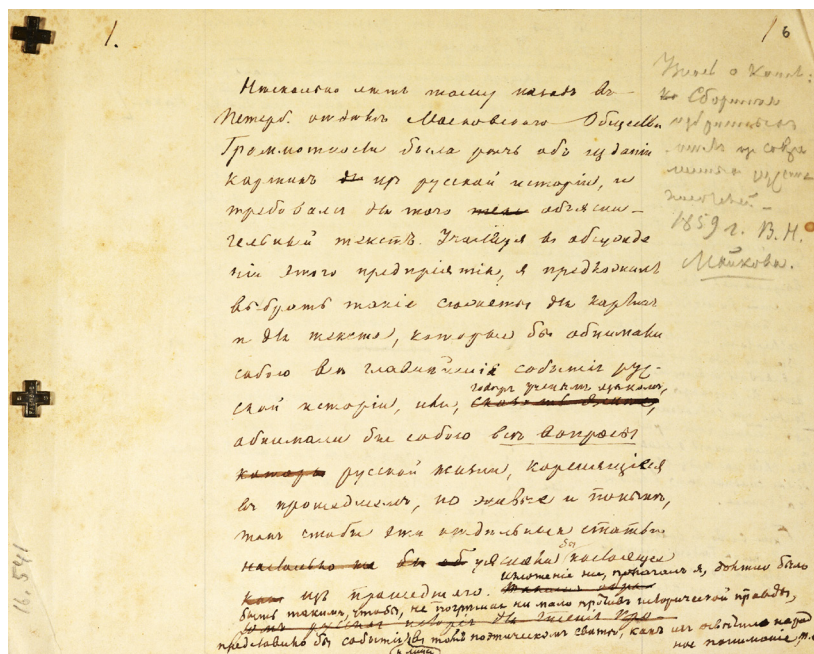 1.
6
Нѣсколько лѣтъ тому назадъ въ
Петерб. отдѣлѣ Московскаго Общества
Грамотности была рѣчь объ изданіи
картинъ изъ русской исторіи, и
требовался для того объясни-
тельный текстъ. Участвуя въ обсужде
ніи этого предпріятія, я предложилъ
выбрать такіе сюжеты для картинъ
и для текста, которые бы обнимали
собою всѣ главнѣйшія событія рус-
ской исторіи, или, говоря ученымъ языкомъ,
обнимали бы собою всѣ вопросы
русской жизни, коренящіеся
въ прошедшемъ, но живые и понынѣ,
такъ чтобы эти отдѣльныя статьи
уясняли бы настоящее
изъ прошедшаго. Изложеніе же, полагалъ я, должно было
быть такимъ, чтобы, не погрѣшая ни мало противъ исторической правды,
представило бы событія въ томъ поэтическомъ свѣтѣ, какъ ихъ освѣтило народ
ное пониманіе
Сборникъ
1859 г. В. Н.
Майкова.
16.541